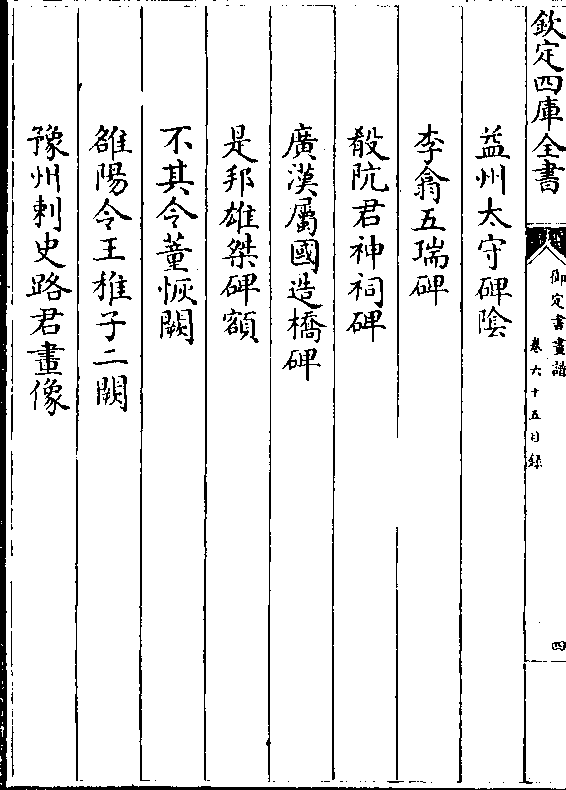 欽定四庫全書
御定書畫譜
卷六十五目録
四
益州太守碑陰
李翕五瑞碑
殽阬君神祠碑
廣漢屬國造橋碑
是邦雄桀碑額
不其令董恢闕
雒陽令王稚子二闕
豫州刺史路君畫像